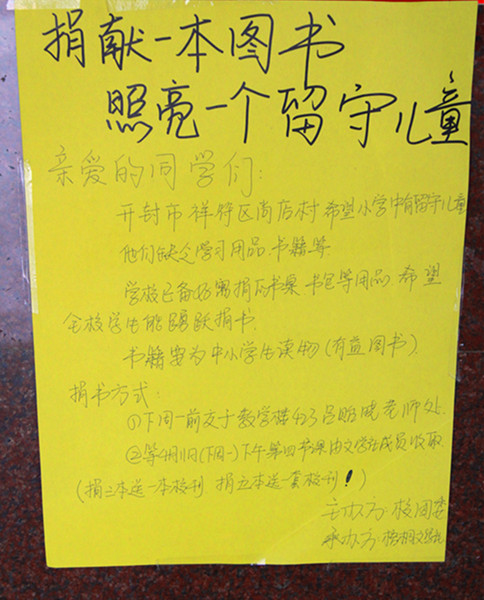 捐献一本图书
照亮一个留守儿童
亲爱的同学们:
开封市祥符区尚店村希望小学中有留守儿童
他们缺乏学习用品 书籍等
学校已备好需捐的书桌 书包等用品 希望
全校学生能踊跃捐书.
书籍要为中小学生读物(有益图书).
捐书方式:
①下周一前交于教学楼 老师处.
②等 (下周一)下午第四节课由文学社成员收取
(捐三本送一本校刊 捐五本送一套校刊!)
主办方:校团委
承办方:梧桐文学社